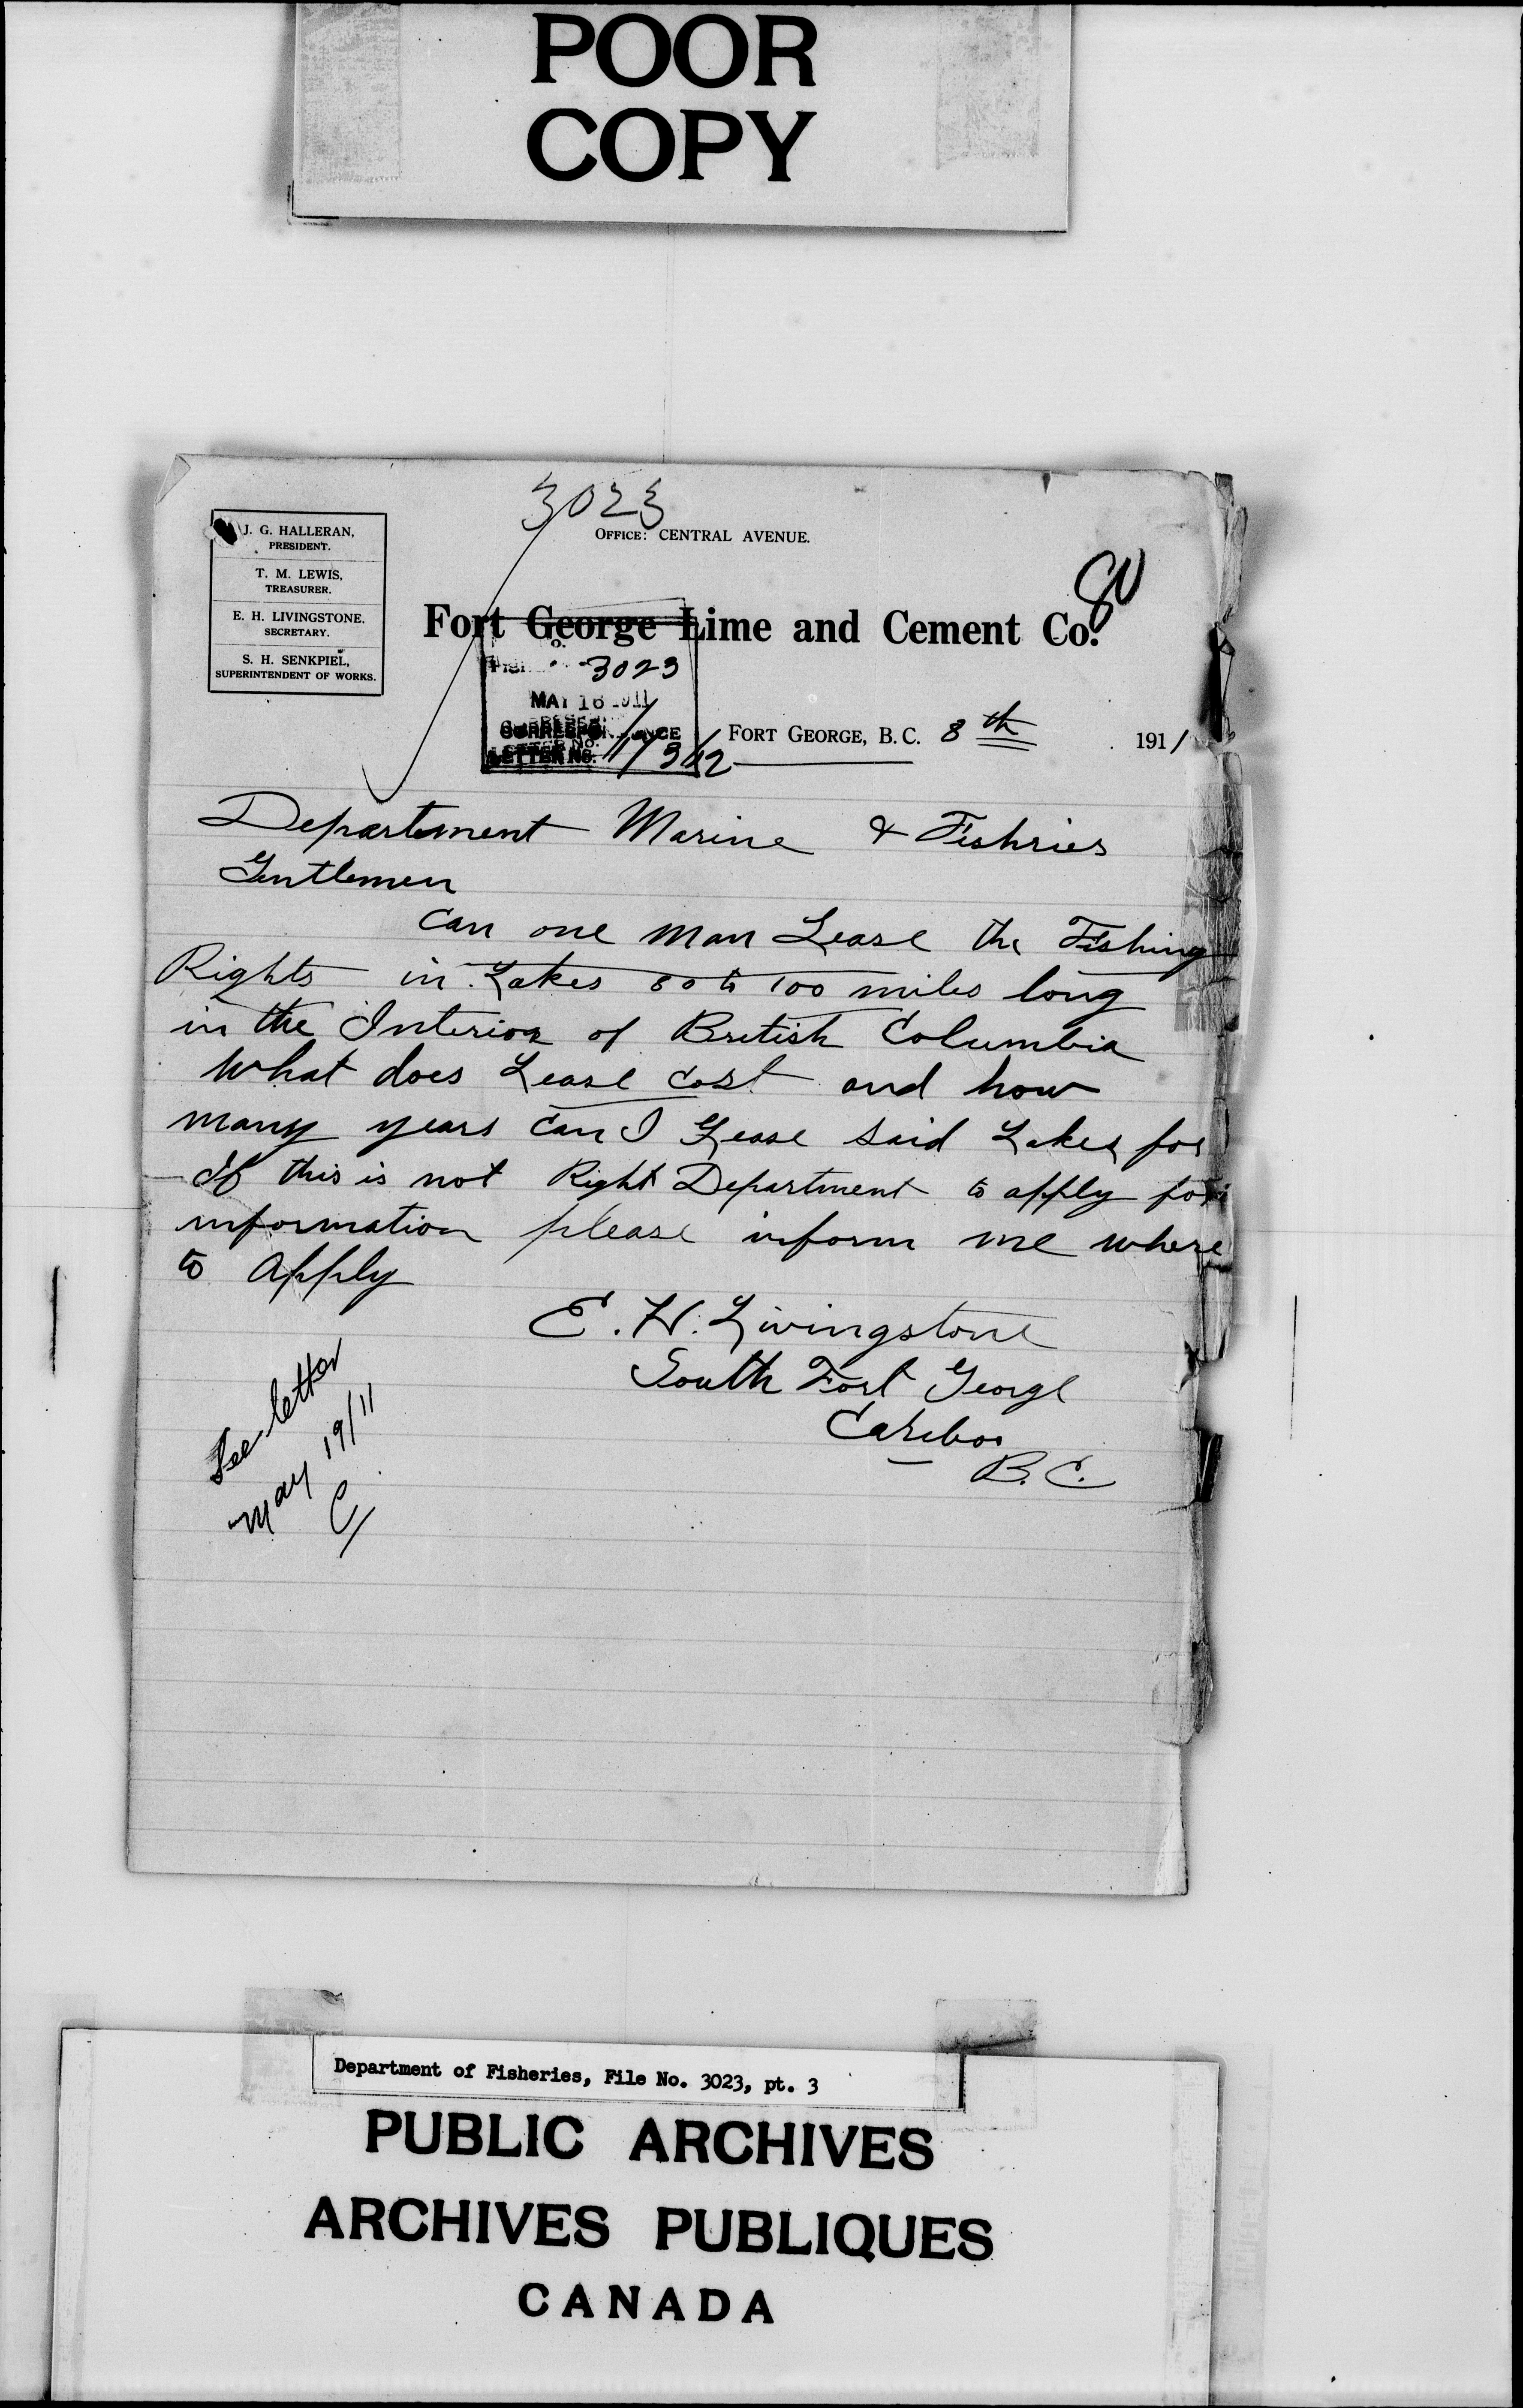 POOR
COPY
3023
OFFICE: CENTRAL AVENUE.
J. G. HALLERAN,
PRESIDENT.
T. M. LEWIS,
TREASURER.
E. H. LIVINGSTONE.
SECRETARY.
S. H. SENKPIEL,
SUPERINTENDENT OF WORKS.
80
Fort George Lime and Cement Co.
3023
MAY 16 1911
LETTER No.
FORT GEORGE, B.C. 8th 1911
Department Marine & Fishries
Gentlemen
Can one man Lease the Fishing
Rights in Lakes 80 to 100 miles long
in the Interior of British Columbia
What does Lease cost and how
many years can I Lease said Lakes for
If this is not Right Department to apply for
information please inform me where
to apply
E. H. Livingstone
South Fort George
Cariboo
B.C.
See letter
May 19/11
C
Department of Fisheries, File No. 3023, pt. 3
PUBLIC ARCHIVES
ARCHIVES PUBLIQUES
CANADA